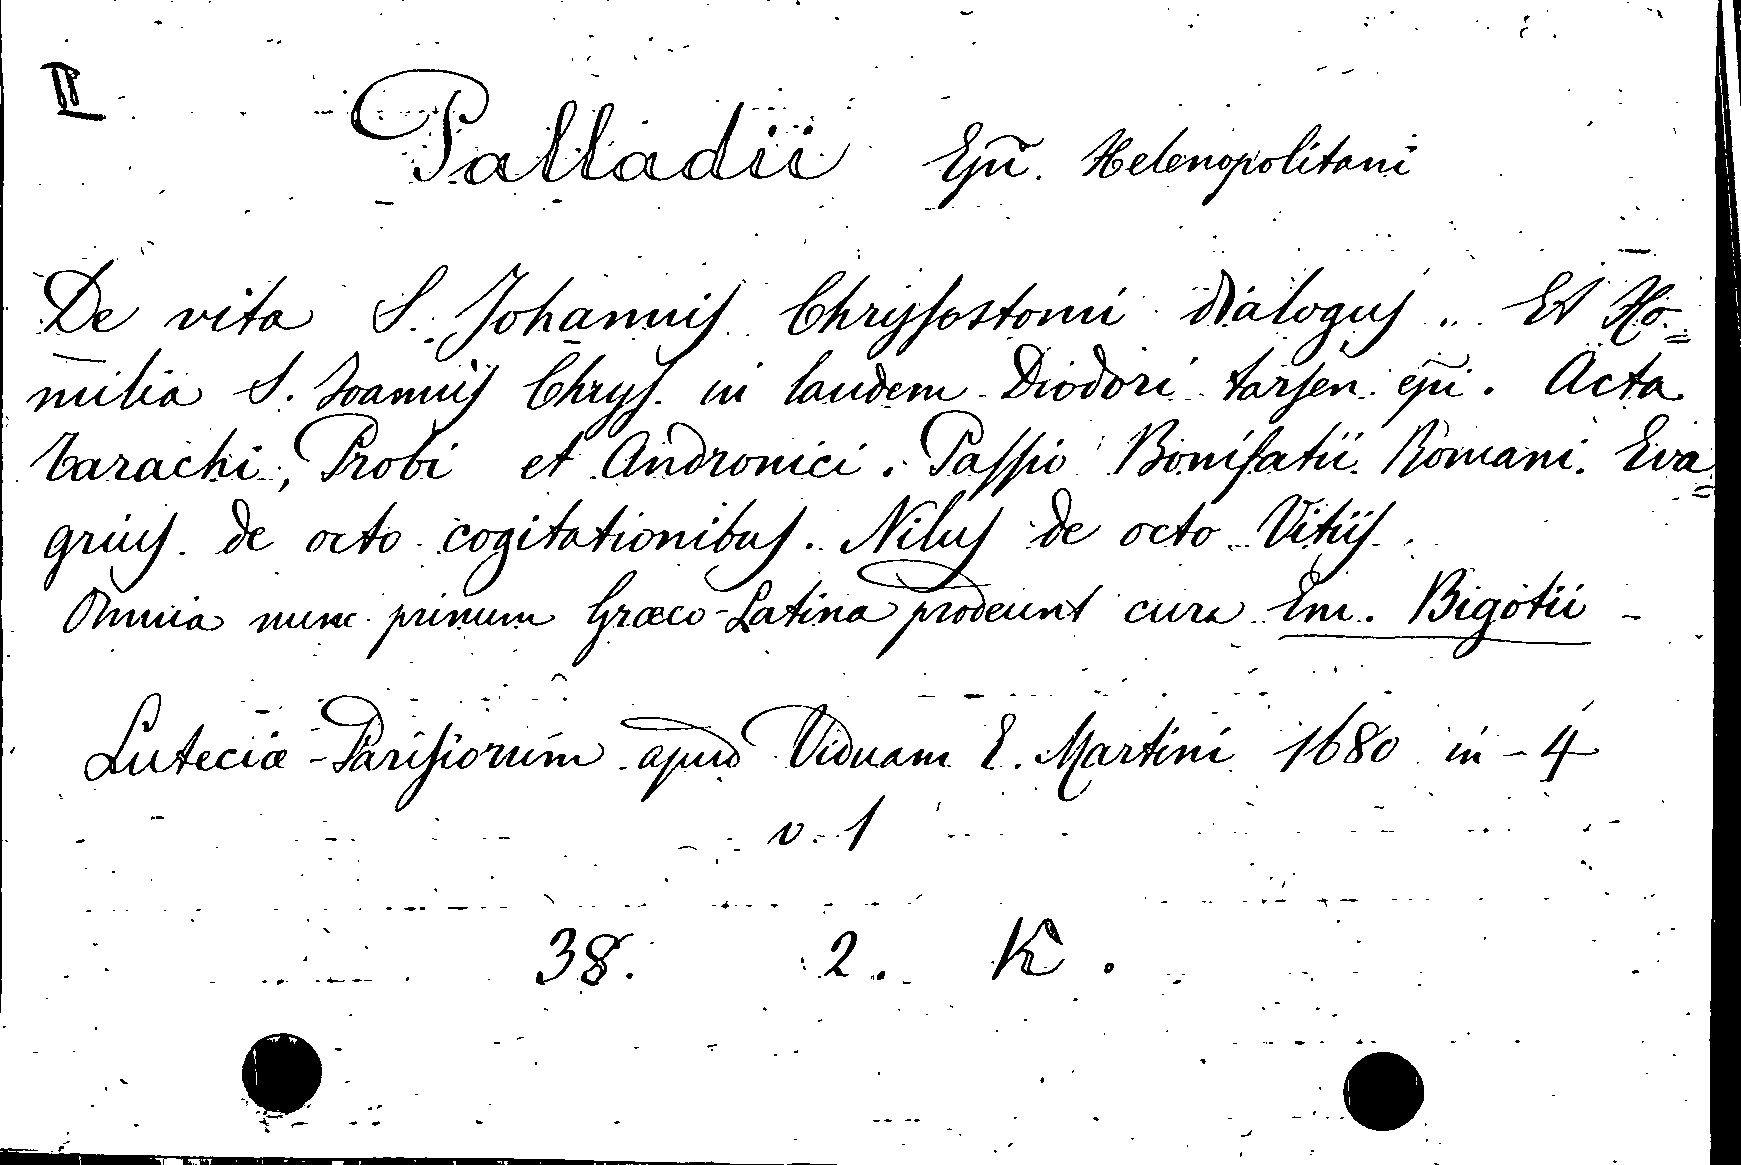 II
Palladii Epi̅. Helenopolitani
De vita S. Johannis Chrysostomi dialogus. Et Ho=
milia S. Joannis Chrys. in laudem Diodori tarsen. epi̅. Acta
Tarachi, Probi et Andronici. Passio Bonifatii Romani. Eva=
grius de octo cogitationibus. Nilus de octo Vitiis.
Omnia nunc primum Græco-Latina prodeunt cura Em. Bigotii -
Luteciæ-Parisiorum apud Viduam E. Martini 1680 in-4
v. 1
38. 2. K.